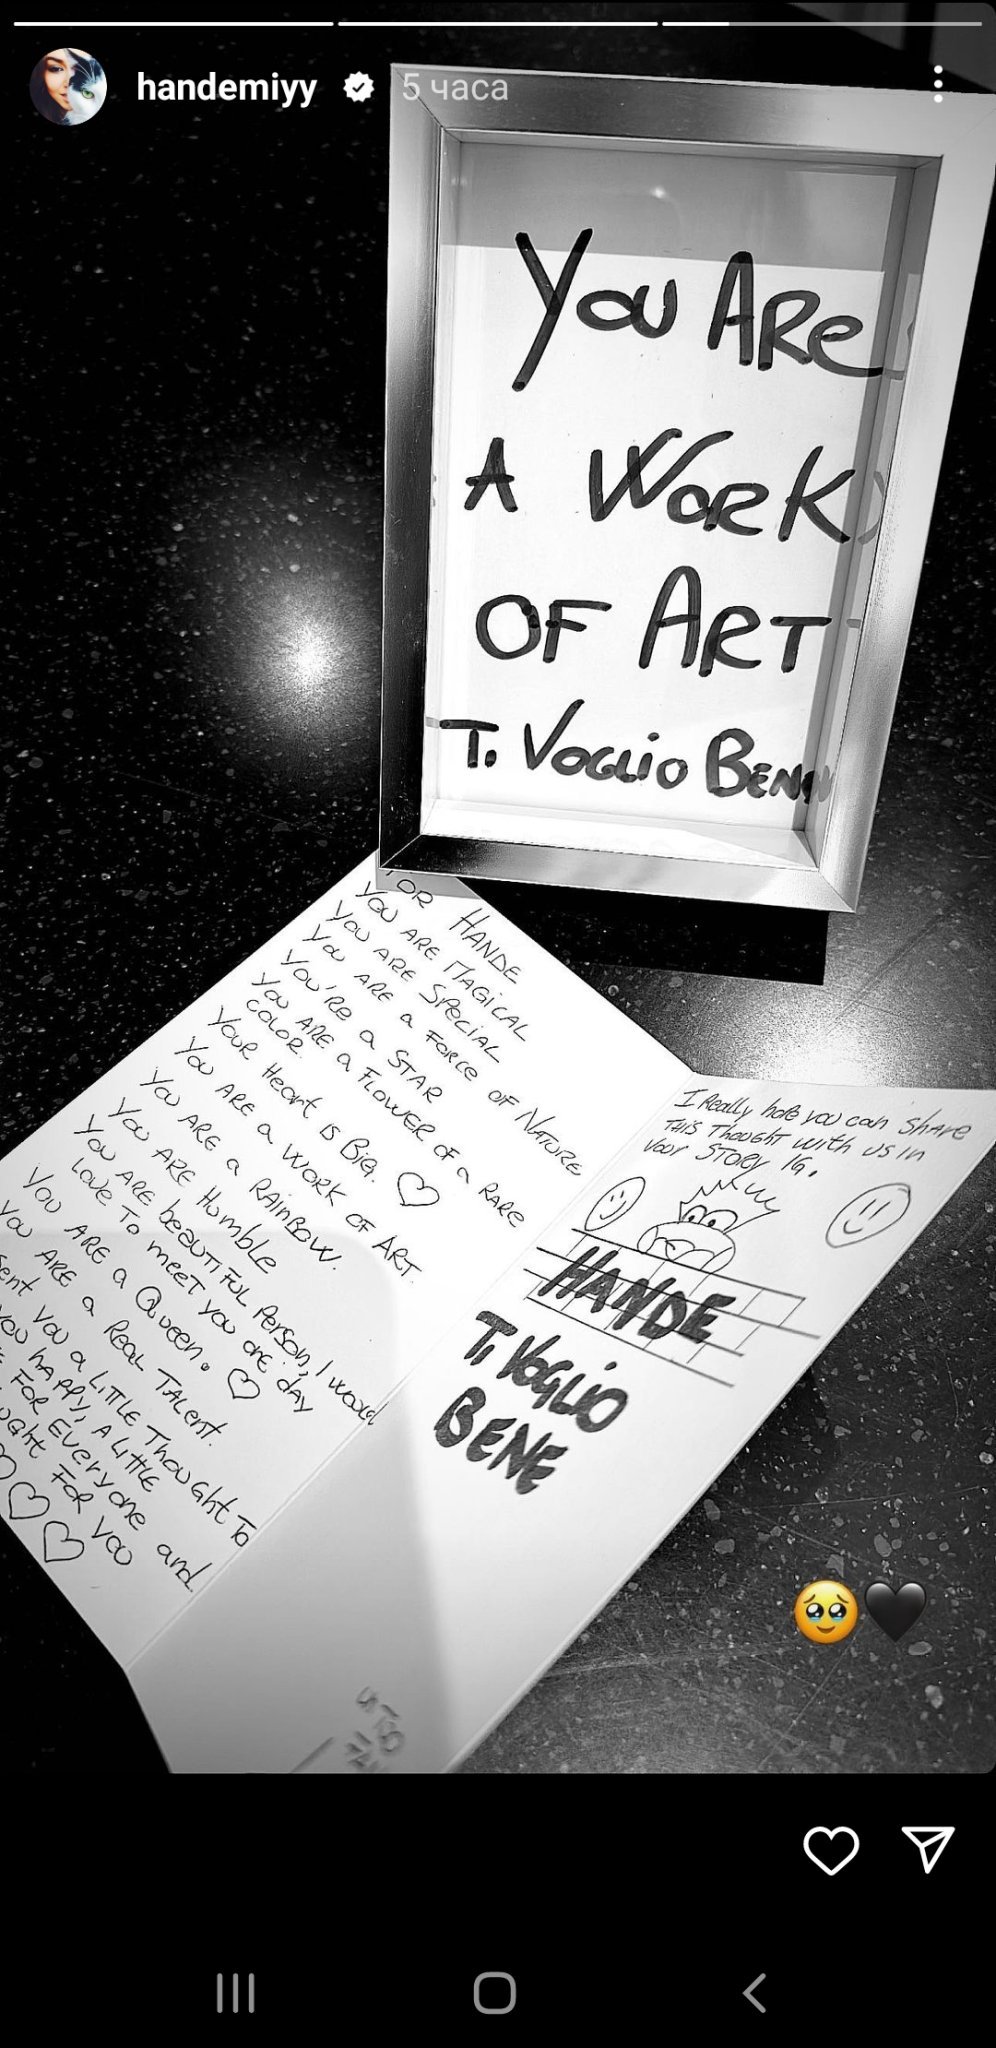 handemiyy 5 часа
YOU ARE
A WORK
OF ART
TI VOGLIO BENE
FOR HANDE
YOU ARE MAGICAL
YOU ARE SPECIAL
YOU ARE a FORCE OF NATURE
YOU'RE a STAR
YOU ARE a FLOWER OF a RARE
COLOR.
YOUR Heart IS BIG. ♡
YOU ARE a WORK OF ART.
YOU ARE a RAINBOW.
YOU ARE Humble
YOU ARE beaUTIFUL Person, I would
Love TO meeT YOU one day
YOU ARE a Queen. ♡
YOU ARE a ReaL TALenT.
sent YOU a LITTLE ThoUGhT To
YOU HAPPY, A LiTTLe
FOR Everyone and
FOR YOU
I Really hope you can Share
THIS Thought with us in
your STORY IG.
HANDE
TI VOGLIO
BENE